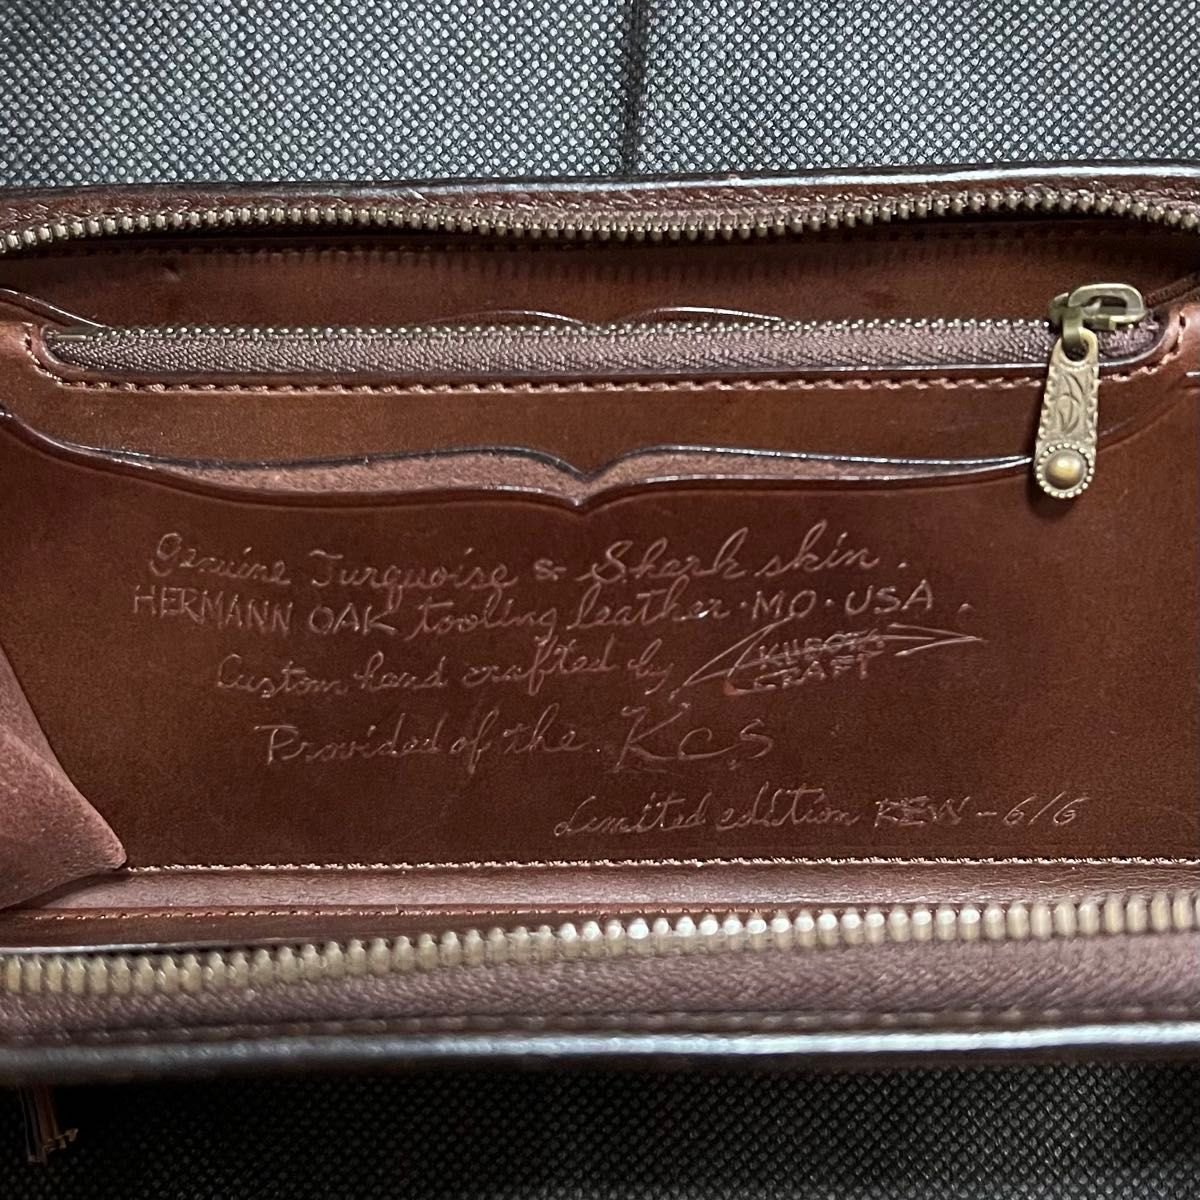 Genuine Turquoise & Shark skin.
HERMANN OAK tooling leather · MO · USA.
Custom hand crafted by KUBOTA CRAFT
Provided of the KC,S
Limited edition KEW-6/6